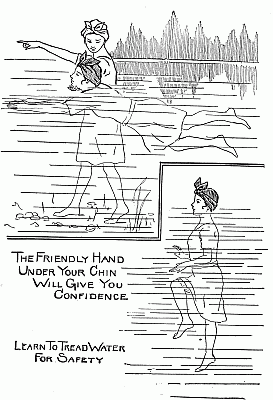 THE FRIENDLY HAND
UNDER YOUR CHIN
WILL GIVE YOU
CONFIDENCE
LEARN TO TREAD WATER
FOR SAFETY